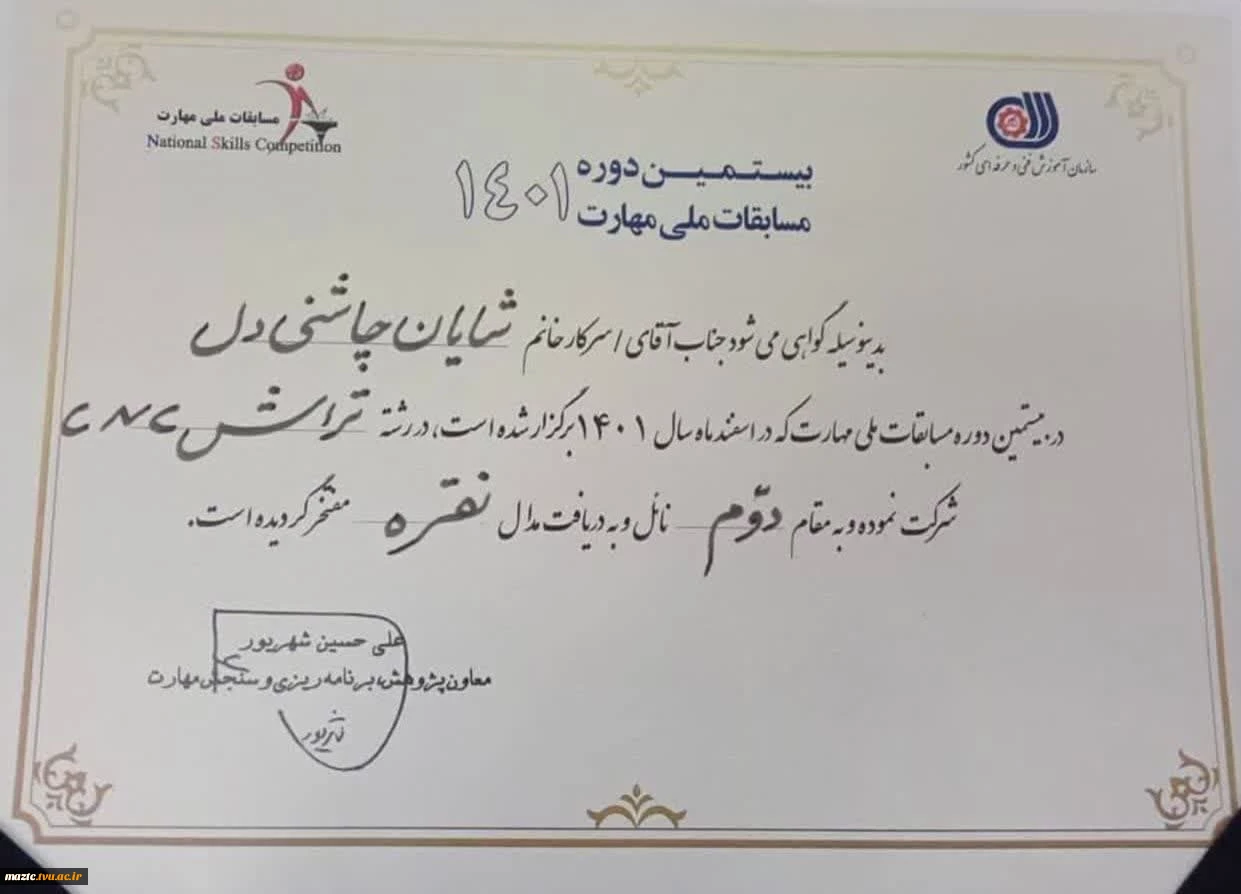 سازمان آموزش فنی و حرفه ای کشور
مسابقات ملی مهارت
National Skills Competition
بیستمین دوره
مسابقات ملی مهارت
۱۴۰۱
بدینوسیله گواهی می شود جناب آقای / سرکار خانم شایان چاشنی دل
در بیستمین دوره مسابقات ملی مهارت که در اسفند ماه سال ۱۴۰۱ برگزار شده است، در رشته تراش CNC
شرکت نموده و به مقام دوّم نائل و به دریافت مدال نقره مفتخر گردیده است.
علی حسین شهریور
معاون پژوهش، برنامه ریزی و سنجش مهارت
maztc.tvu.ac.ir